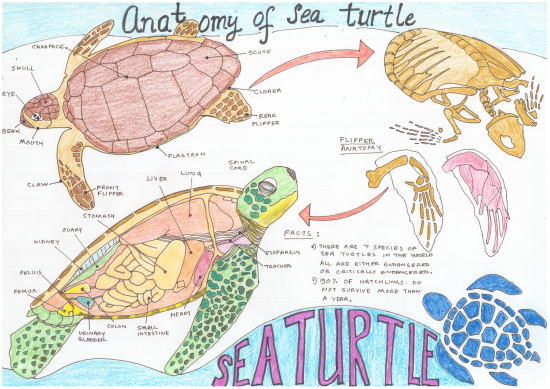 Anatomy of Sea turtle
CARAPACE
SCUTE
SKULL
EYE
BEAK
MOUTH
CLOACA
REAR
FLIPPER
PLASTRON
CLAW
FRONT
FLIPPER
FLIPPER
ANATOMY
SPINAL
CORD
LIVER
LUNG
STOMACH
OVARY
KIDNEY
PELVIS
FEMUR
URINARY
BLADDER
COLON
SMALL
INTESTINE
HEART
ESOPHAGUS
TRACHEA
FACTS:
1) THERE ARE 7 SPECIES OF
SEA TURTLES IN THE WORLD
ALL ARE EITHER ENDANGERED
OR CRITICALLY ENDANGERED.
2) 90% OF HATCHLINGS DO
NOT SURVIVE MORE THAN
A YEAR.
SEA TURTLE